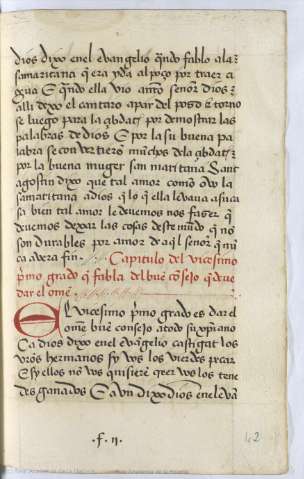 dios dixo enel evangelio qndo fablo ala
samaritana q era yda al poço por traer a
gua E qndo ella vio anto señor dios
alli dexo el cantaro apar del pozo E torno
se luego para la çbdat por demostrar las
palabras de dios E por la su buena pa
labra se convertiero muchos dela çbdat
por la buena muger san maritana Sant
agostin dixo que tal amor como ovo la
samaritana adios q lo q ella levava a su ca
sa bien tal amor le devemos nos fazer q
devemos dexar las cosas deste mudo q no
son durables por amor de aql señor q nū
ca avera fin Capitulo del vicesimo
pmo grado q fabla del bue cōsejo q deve
dar el ome
El vicesimo pmo grado es dar el
ome bue consejo atodo su xpiano
Ca dios dixo en el evangelio castigat los
vros hermanos sy vos los vierdes pecar
E sy ellos no vos quisiere creer vos los tene
des ganados E aun dixo dios enel evā
f. ii
42